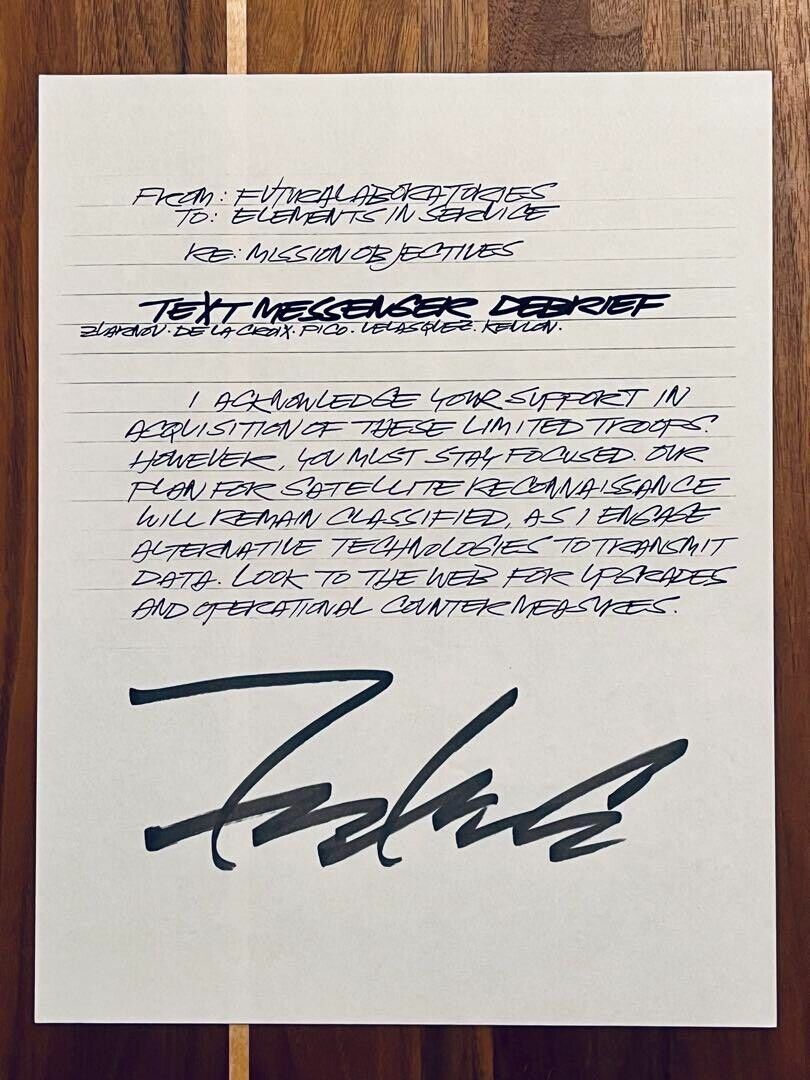 FROM: FUTURALABORATORIES
TO: ELEMENTS IN SERVICE
RE: MISSION OBJECTIVES
TEXT MESSENGER DEBRIEF
ZLARNOV. DE LA CROIX. PICO. VELASQUEZ. KELLON.
I ACKNOWLEDGE YOUR SUPPORT IN
ACQUISITION OF THESE LIMITED TROOPS.
HOWEVER, YOU MUST STAY FOCUSED. OUR
PLAN FOR SATELLITE RECONNAISSANCE
WILL REMAIN CLASSIFIED, AS I ENGAGE
ALTERNATIVE TECHNOLOGIES TO TRANSMIT
DATA. LOOK TO THE WEB FOR UPGRADES
AND OPERATIONAL COUNTER MEASURES.